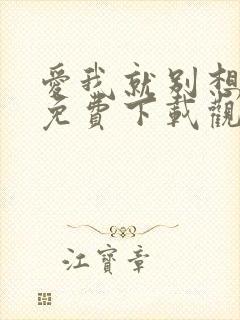 愛我就别想
免費下載觀
江寶章